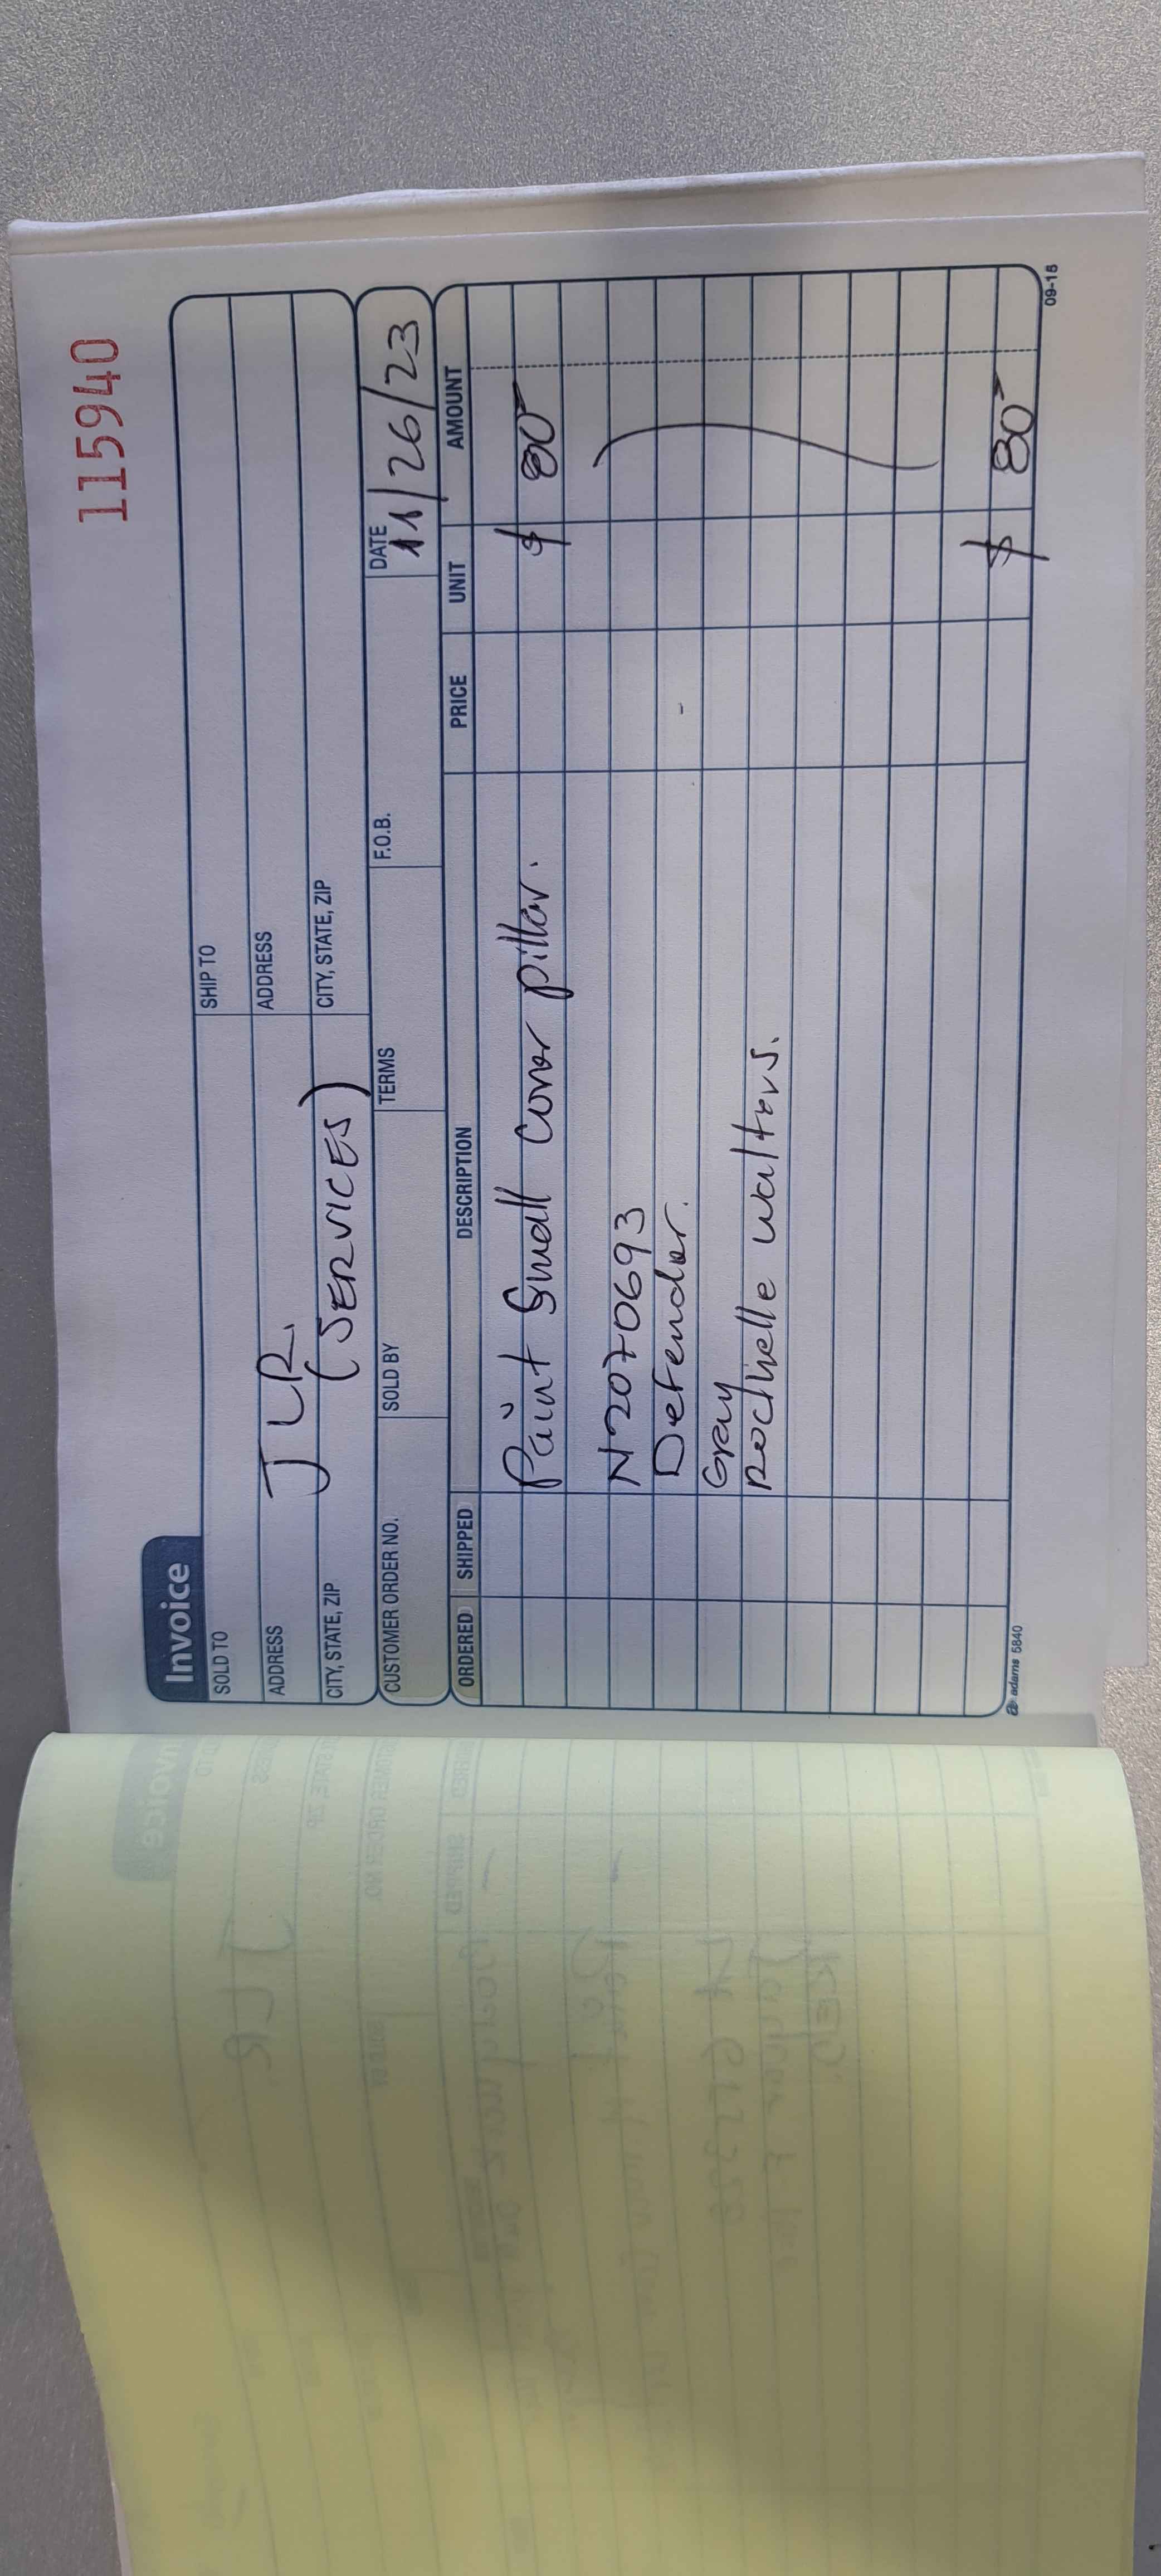 115940
Invoice
SOLD TO
SHIP TO
ADDRESS
JLR.
ADDRESS
CITY, STATE, ZIP
(SERVICES)
CITY, STATE, ZIP
CUSTOMER ORDER NO.
SOLD BY
TERMS
F.O.B.
DATE
11/26/23
ORDERED SHIPPED DESCRIPTION PRICE UNIT AMOUNT
Paint Small Coner pillar. $ 80
N2070693
Defender.
Gray
Rochelle walters.
$ 80
adams 5840
09-15